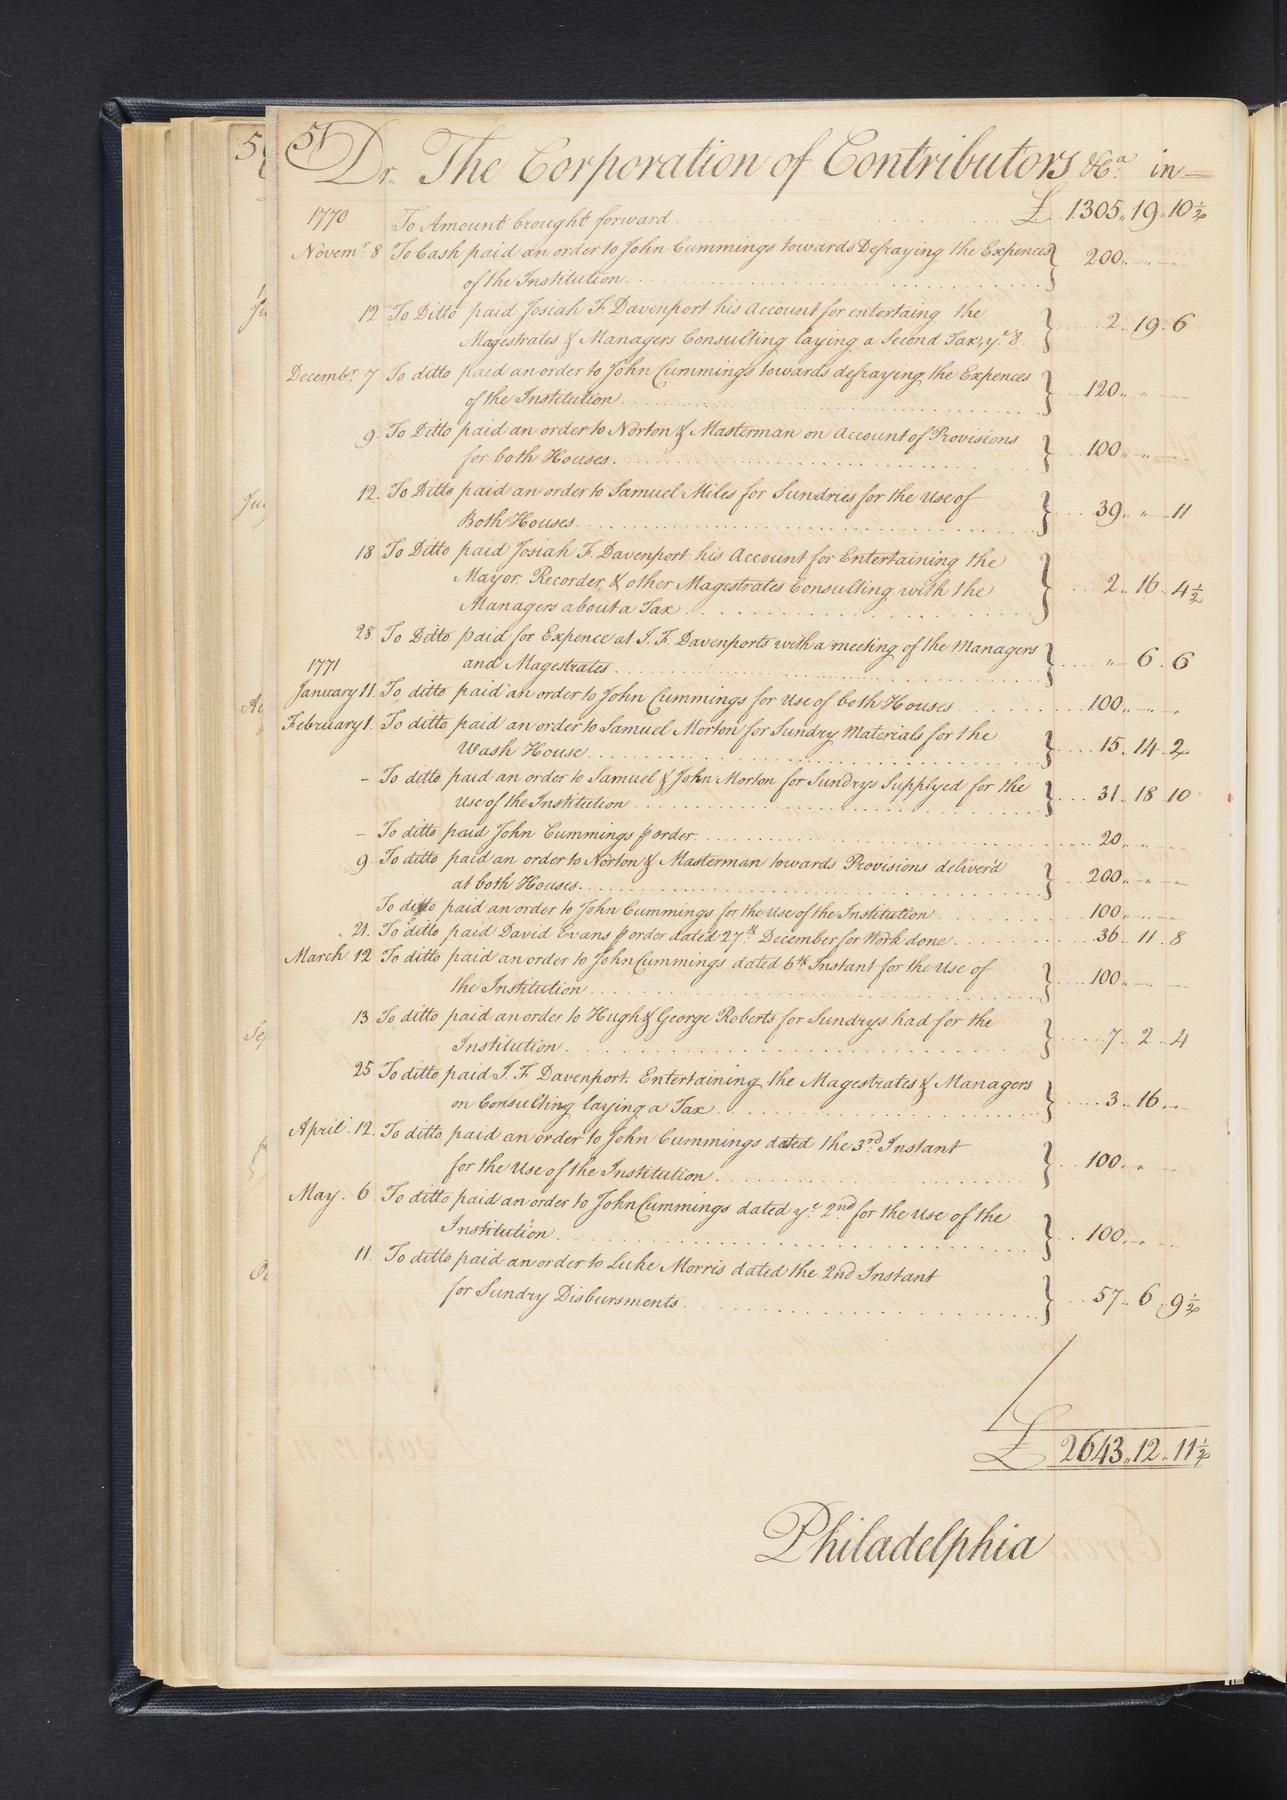 51
Dr. The Corporation of Contributors &Ca. in
1770 To Amount brought forward £ 1305 „ 19 „ 10 1/2
Novemr. 8 To Cash paid an order to John Cummings towards Defraying the Expences
of the Institution 200 „ „
12 To Ditto paid Josiah F. Davenport his Account for entertaing the
Magestrates & Managers Consulting laying a Second Tax, ye. 8 2 „ 19 „ 6
Decembr. 7 To ditto paid an order to John Cummings towards defraying the Expences
of the Institution 120 „ „
9 To Ditto paid an order to Norton & Masterman on Account of Provisions
for both Houses 100 „ „
12. To Ditto paid an order to Samuel Miles for Sundries for the Use of
Both Houses 39 „ „ 11
18 To Ditto paid Josiah F. Davenport his Account for Entertaining the
Mayor, Recorder, & other Magestrates Consulting with the
Managers about a Tax 2 „ 16 „ 4 1/2
28 To Ditto paid for Expence at J. F. Davenports with a meeting of the Managers
and Magestrates „ 6 „ 6
1771
January 11. To ditto paid an order to John Cummings for Use of both Houses 100 „ „
February 1. To ditto paid an order to Samuel Morton for Sundry Materials for the
Wash House 15 „ 14 „ 2
– To ditto paid an order to Samuel & John Morton for Sundrys Supplyed for the
Use of the Institution 31 „ 18 „ 10
– To ditto paid John Cummings ⅌ order 20 „ „
9 To ditto paid an order to Norton & Masterman towards Provisions deliver'd
at both Houses 200 „ „
To ditto paid an order to John Cummings for the Use of the Institution 100 „ „
21. To ditto paid David Evans ⅌ order dated 27th. December for Work done 36 „ 11 „ 8
March 12 To ditto paid an order to John Cummings dated 6th. Instant for the Use of
the Institution 100 „ „
13 To ditto paid an order to Hugh & George Roberts for Sundrys had for the
Institution 7 „ 2 „ 4
25 To ditto paid J. F. Davenport, Entertaining the Magestrates & Managers
on Consulting laying a Tax 3 „ 16 „
April. 12. To ditto paid an order to John Cummings dated the 3rd. Instant
for the Use of the Institution 100 „ „
May. 6 To ditto paid an order to John Cummings dated ye. 2nd. for the Use of the
Institution 100 „ „
11. To ditto paid an order to Luke Morris dated the 2nd Instant
for Sundry Disbursments 57 „ 6 „ 9 1/2
£ 2643 „ 12 „ 11 1/2
Philadelphia